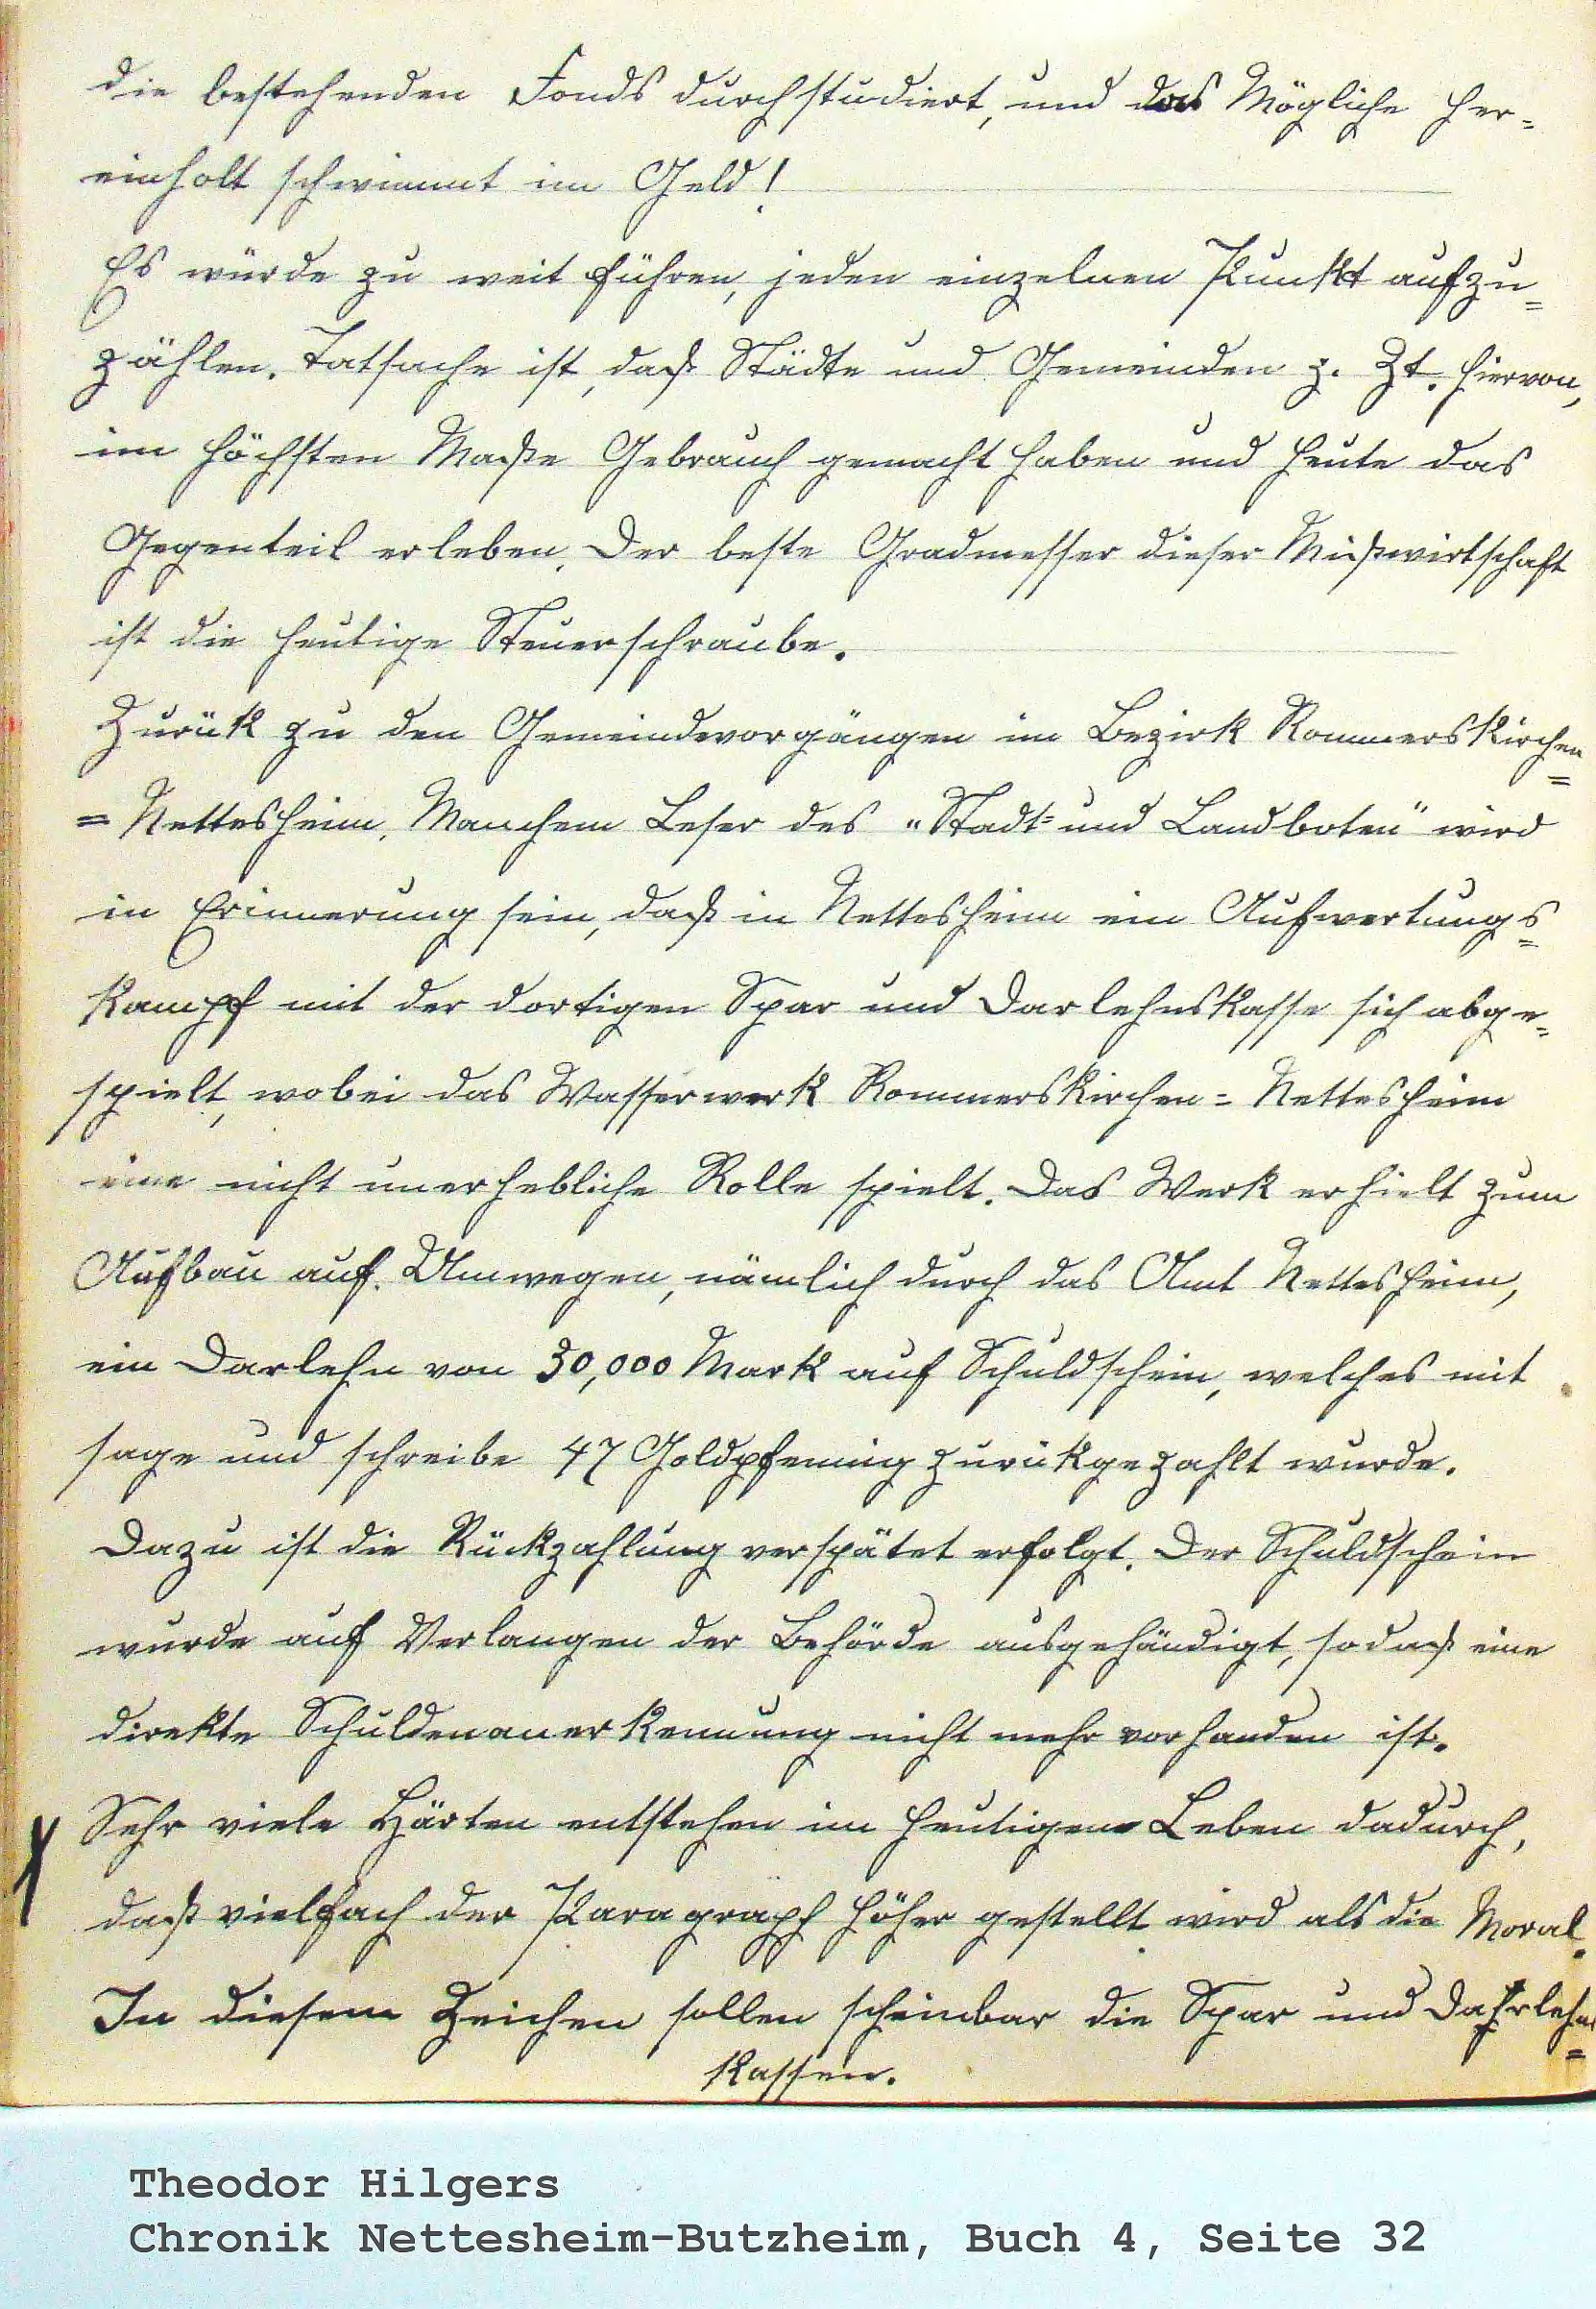 die bestehenden Fonds durchstudiert, und das Mögliche her=
einholt schwimmt im Geld!
Es würde zu weit führen, jeden einzelnen Punkt aufzu=
zählen. Tatsache ist, daß Städte und Gemeinden z. Zt. hiervon,
im höchsten Maße Gebrauch gemacht haben und heute das
Gegenteil erleben. Der beste Gradmesser dieser Mißwirtschaft
ist die heutige Steuerschraube.
Zurük zu den Gemeindevorgängen im Bezirk Rommerskirchen=
=Nettesheim. Manchem Leser des „Stadt= und Landboten" wird
in Erinnerung sein, daß in Nettesheim ein Aufwertungs=
kampf mit der dortigen Spar und Darlehnskasse sich abge=
spielt, wobei das Wasserwerk Rommerskirchen=Nettesheim
eine nicht unerhebliche Rolle spielt. Das Werk erhielt zum
Aufbau auf Umwegen, nämlich durch das Amt Nettesheim,
ein Darlehn von 30,000 Mark auf Schuldschein, welches mit
sage und schreibe 47 Goldpfennig zurükgezahlt wurde.
Dazu ist die Rückzahlung verspätet erfolgt. Der Schuldschein
wurde auf Verlangen der Behörde ausgehändigt, sodaß eine
direkte Schuldenanerkennung nicht mehr vorhanden ist.
Sehr viele Härten entstehen im heutigen Leben dadurch,
daß vielfach der Paragraph höher gestellt wird als die Moral.
In diesem Zeichen sollen scheinbar die Spar und Dahrlehns=
kassen.
Theodor Hilgers
Chronik Nettesheim-Butzheim, Buch 4, Seite 32